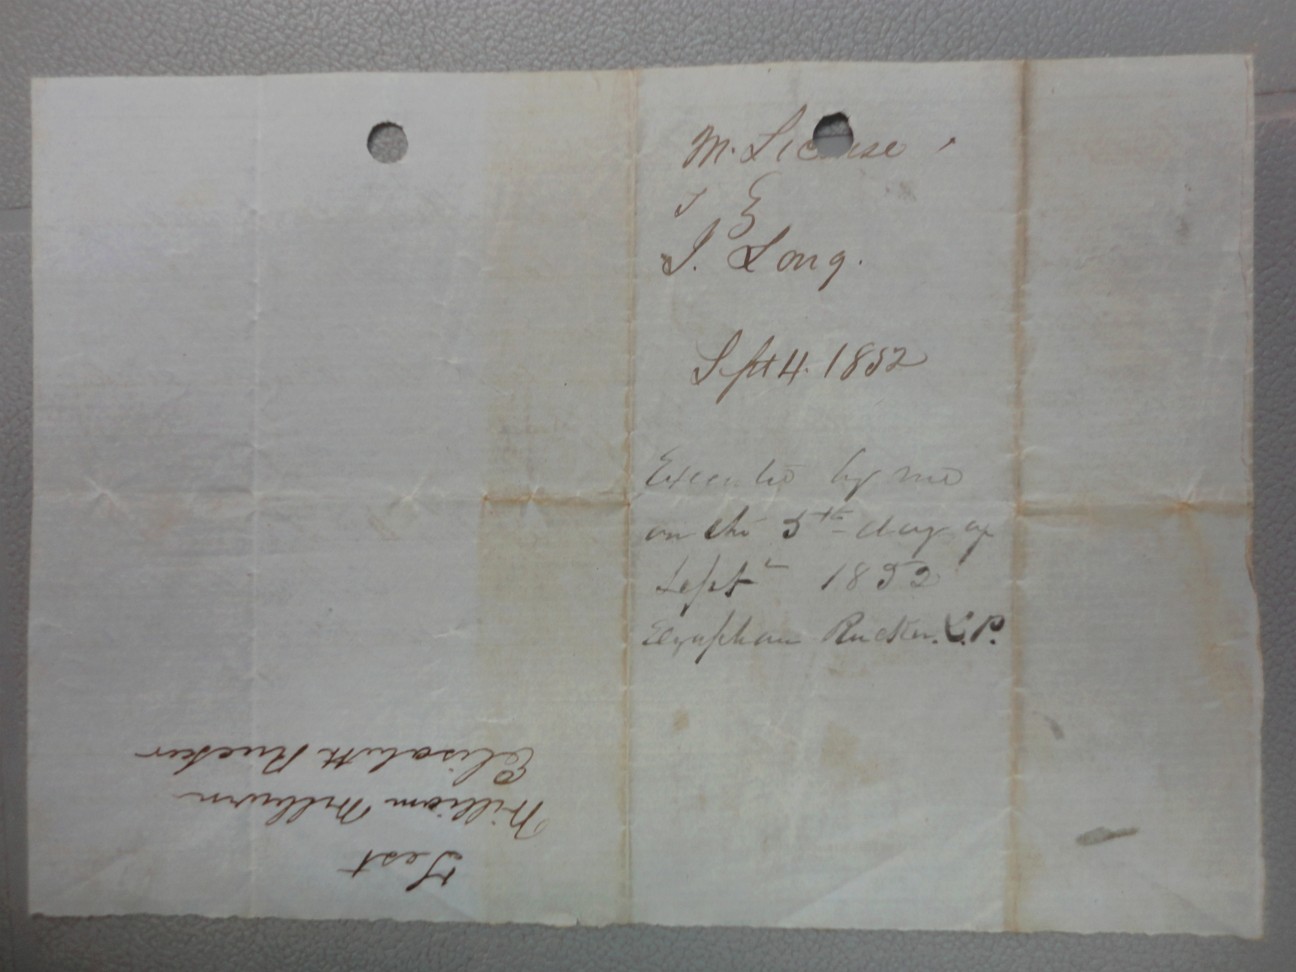 M. License
T. &
J. Long.
Sept 4. 1852
Executed by me
on the 5th day of
Sept 1852
Rucker. L.P.
Test
William Milburn
Elisabeth Rucker